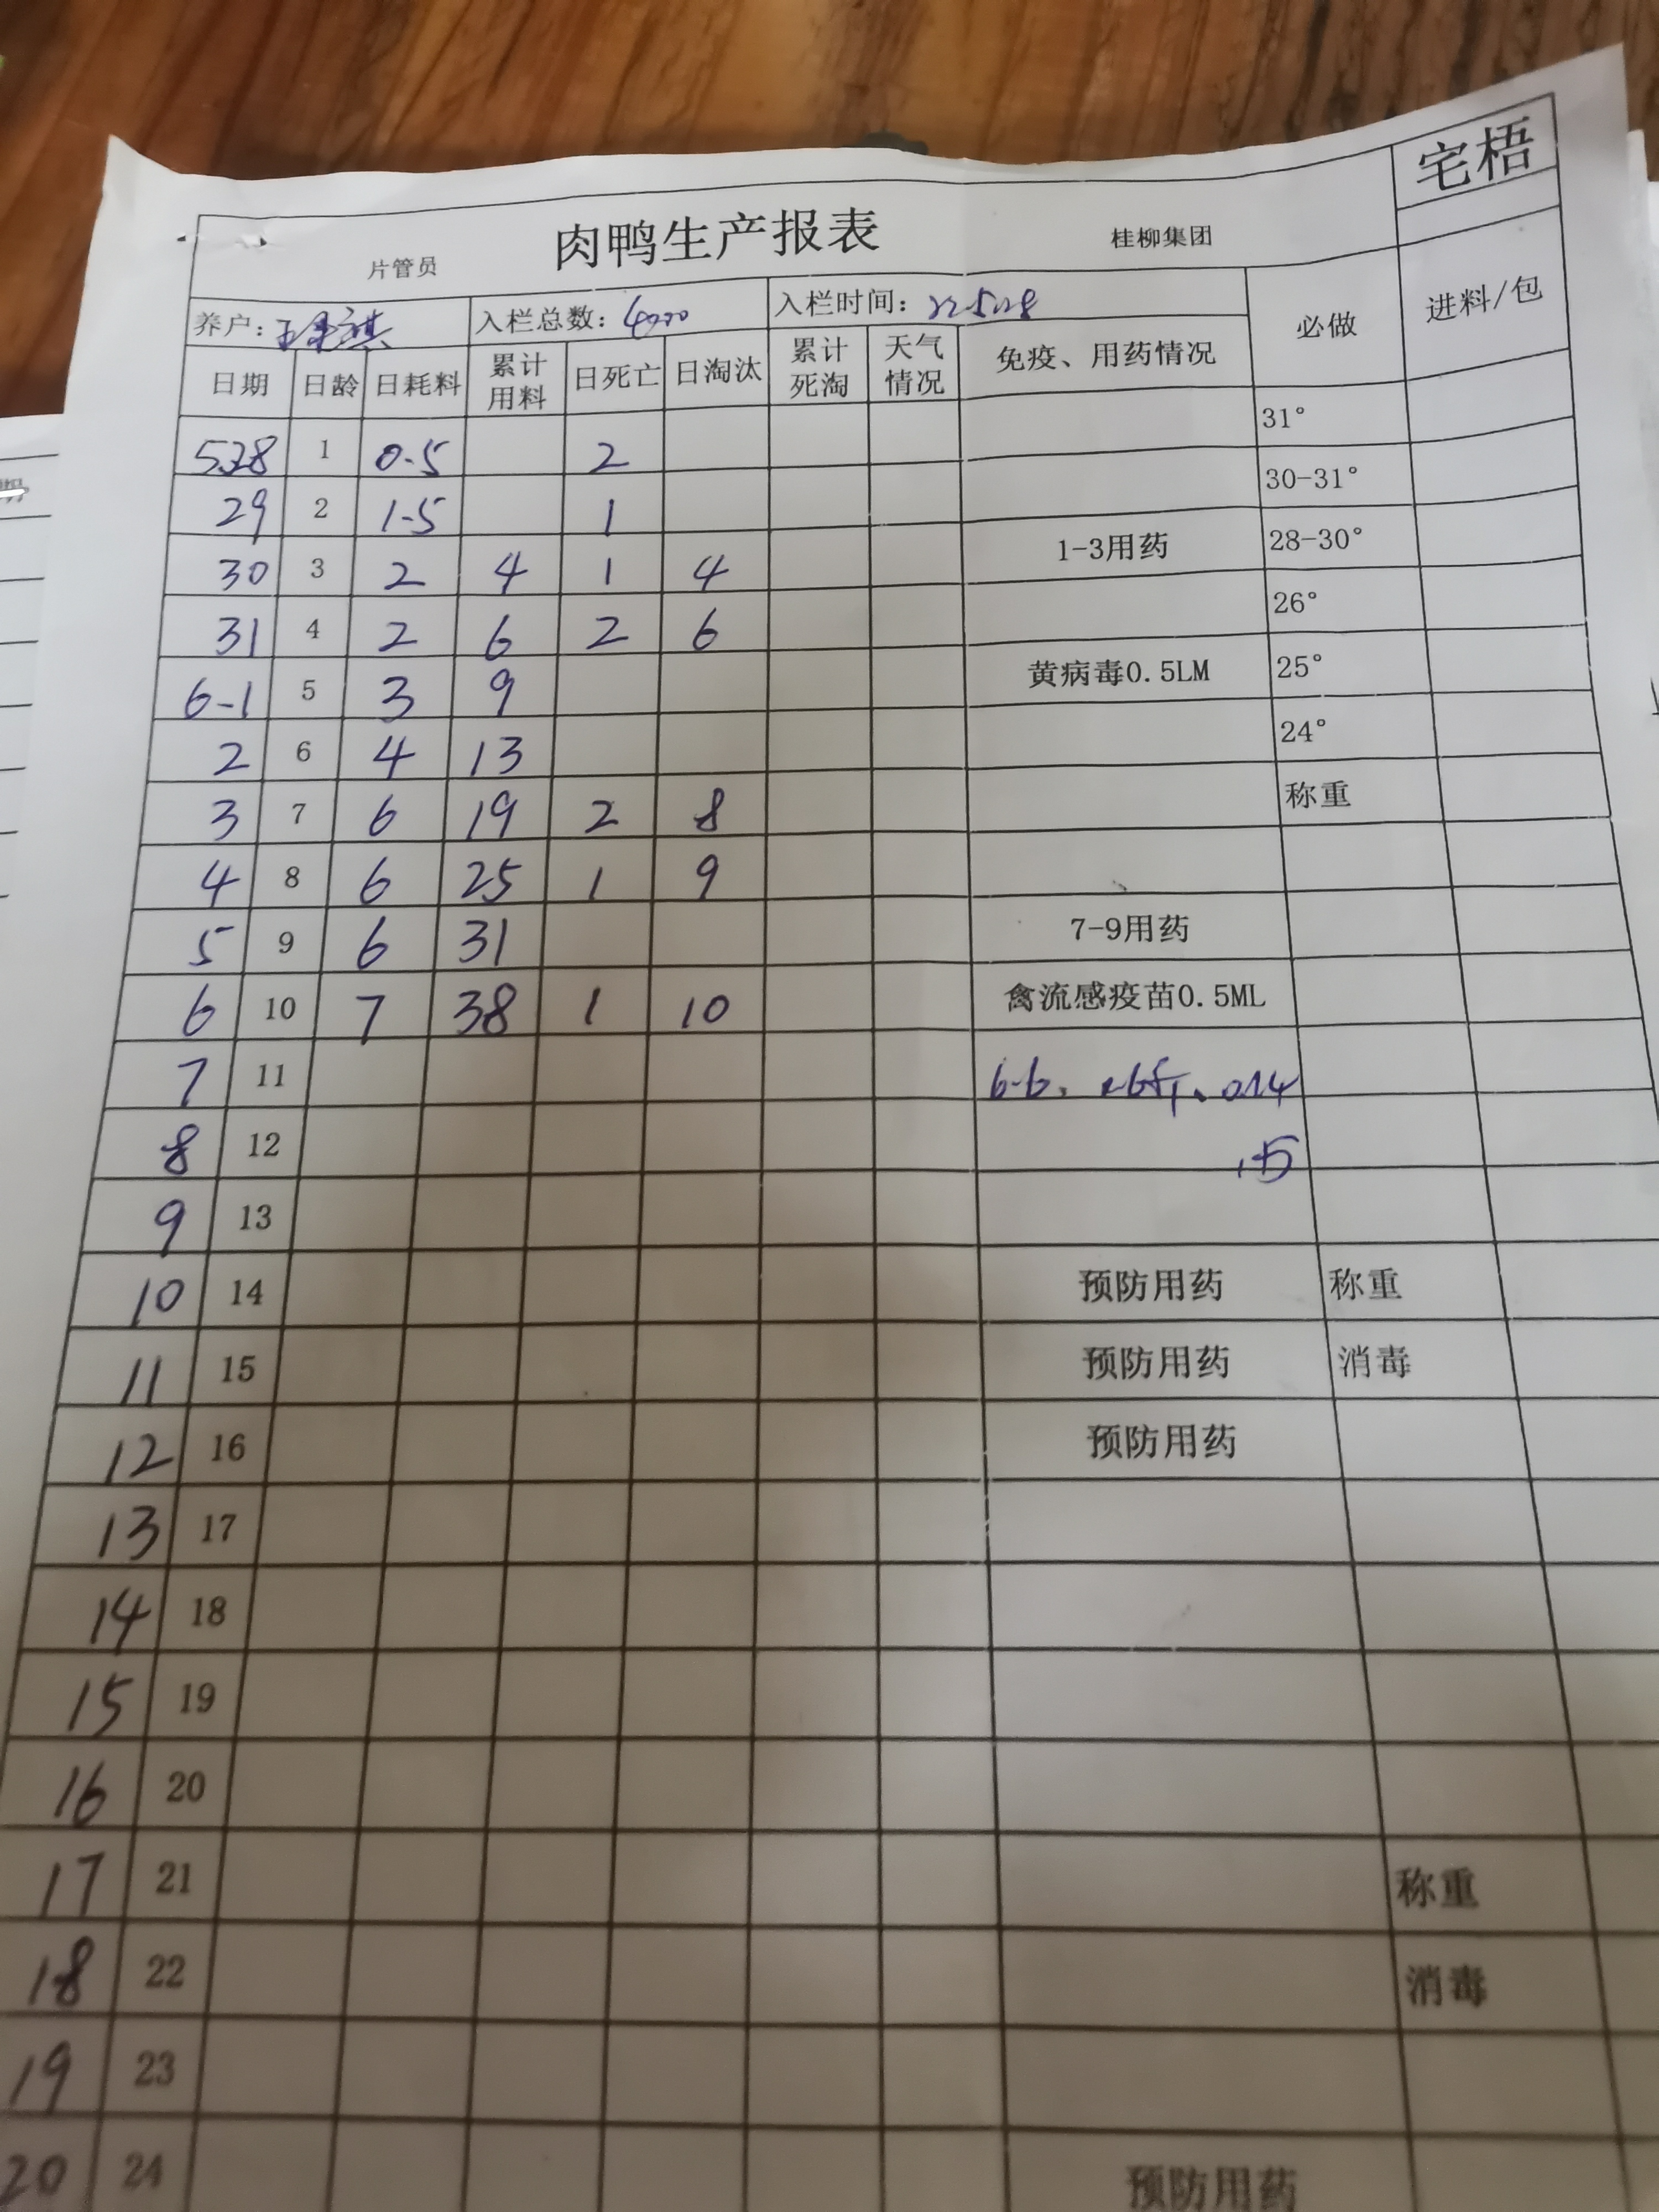 宅梧
肉鸭生产报表
片管员 桂柳集团
养户： 入栏总数：4000 入栏时间：22-5-28 必做 进料/包
日期 日龄 日耗料 累计用料 日死亡 日淘汰 累计死淘 天气情况 免疫、用药情况
5.28 1 0-5 2 31°
29 2 1-5 1 30-31°
30 3 2 4 1 4 1-3用药 28-30°
31 4 2 6 2 6 26°
6-1 5 3 9 黄病毒0.5LM 25°
2 6 4 13 24°
3 7 6 19 2 8 称重
4 8 6 25 1 9
5 9 6 31 7-9用药
6 10 7 38 1 10 禽流感疫苗0.5ML
7 11 6-6、
8 12
9 13
10 14 预防用药 称重
11 15 预防用药 消毒
12 16 预防用药
13 17
14 18
15 19
16 20
17 21 称重
18 22 消毒
19 23
20 24 预防用药